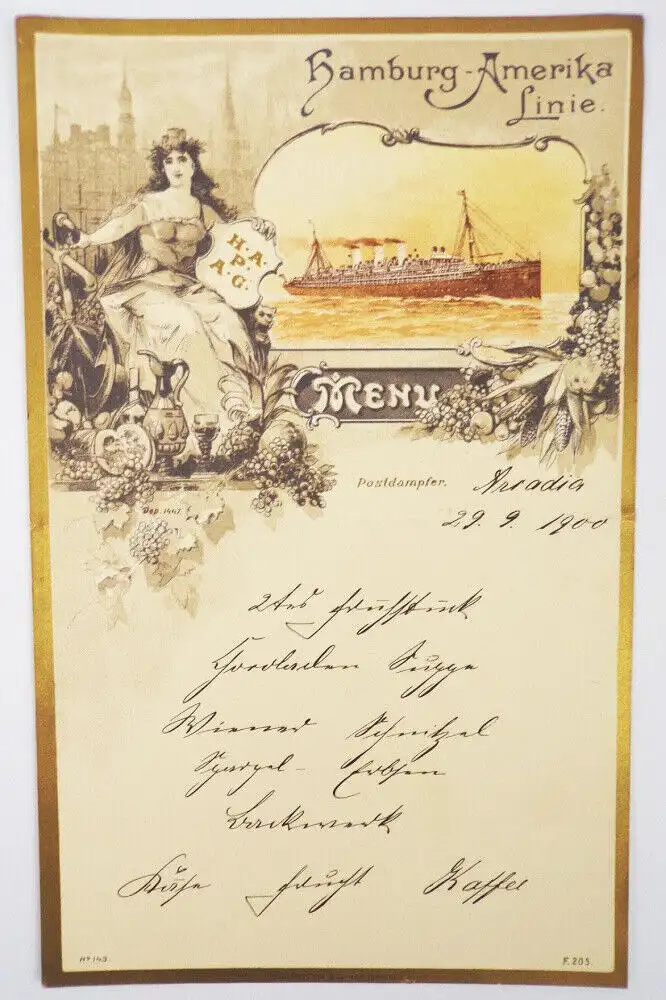 Hamburg-Amerika
Linie.
H.A.
P.
A.G.
MENU
Postdampfer. Arcadia
29. 9. 1900
Dep. 1447.
2tes Frühstück
Suppe
Wiener Schnitzel
Spargel - Erbsen
Backwerk
Käse Frucht Kaffee
Nº 143.
F. 205.